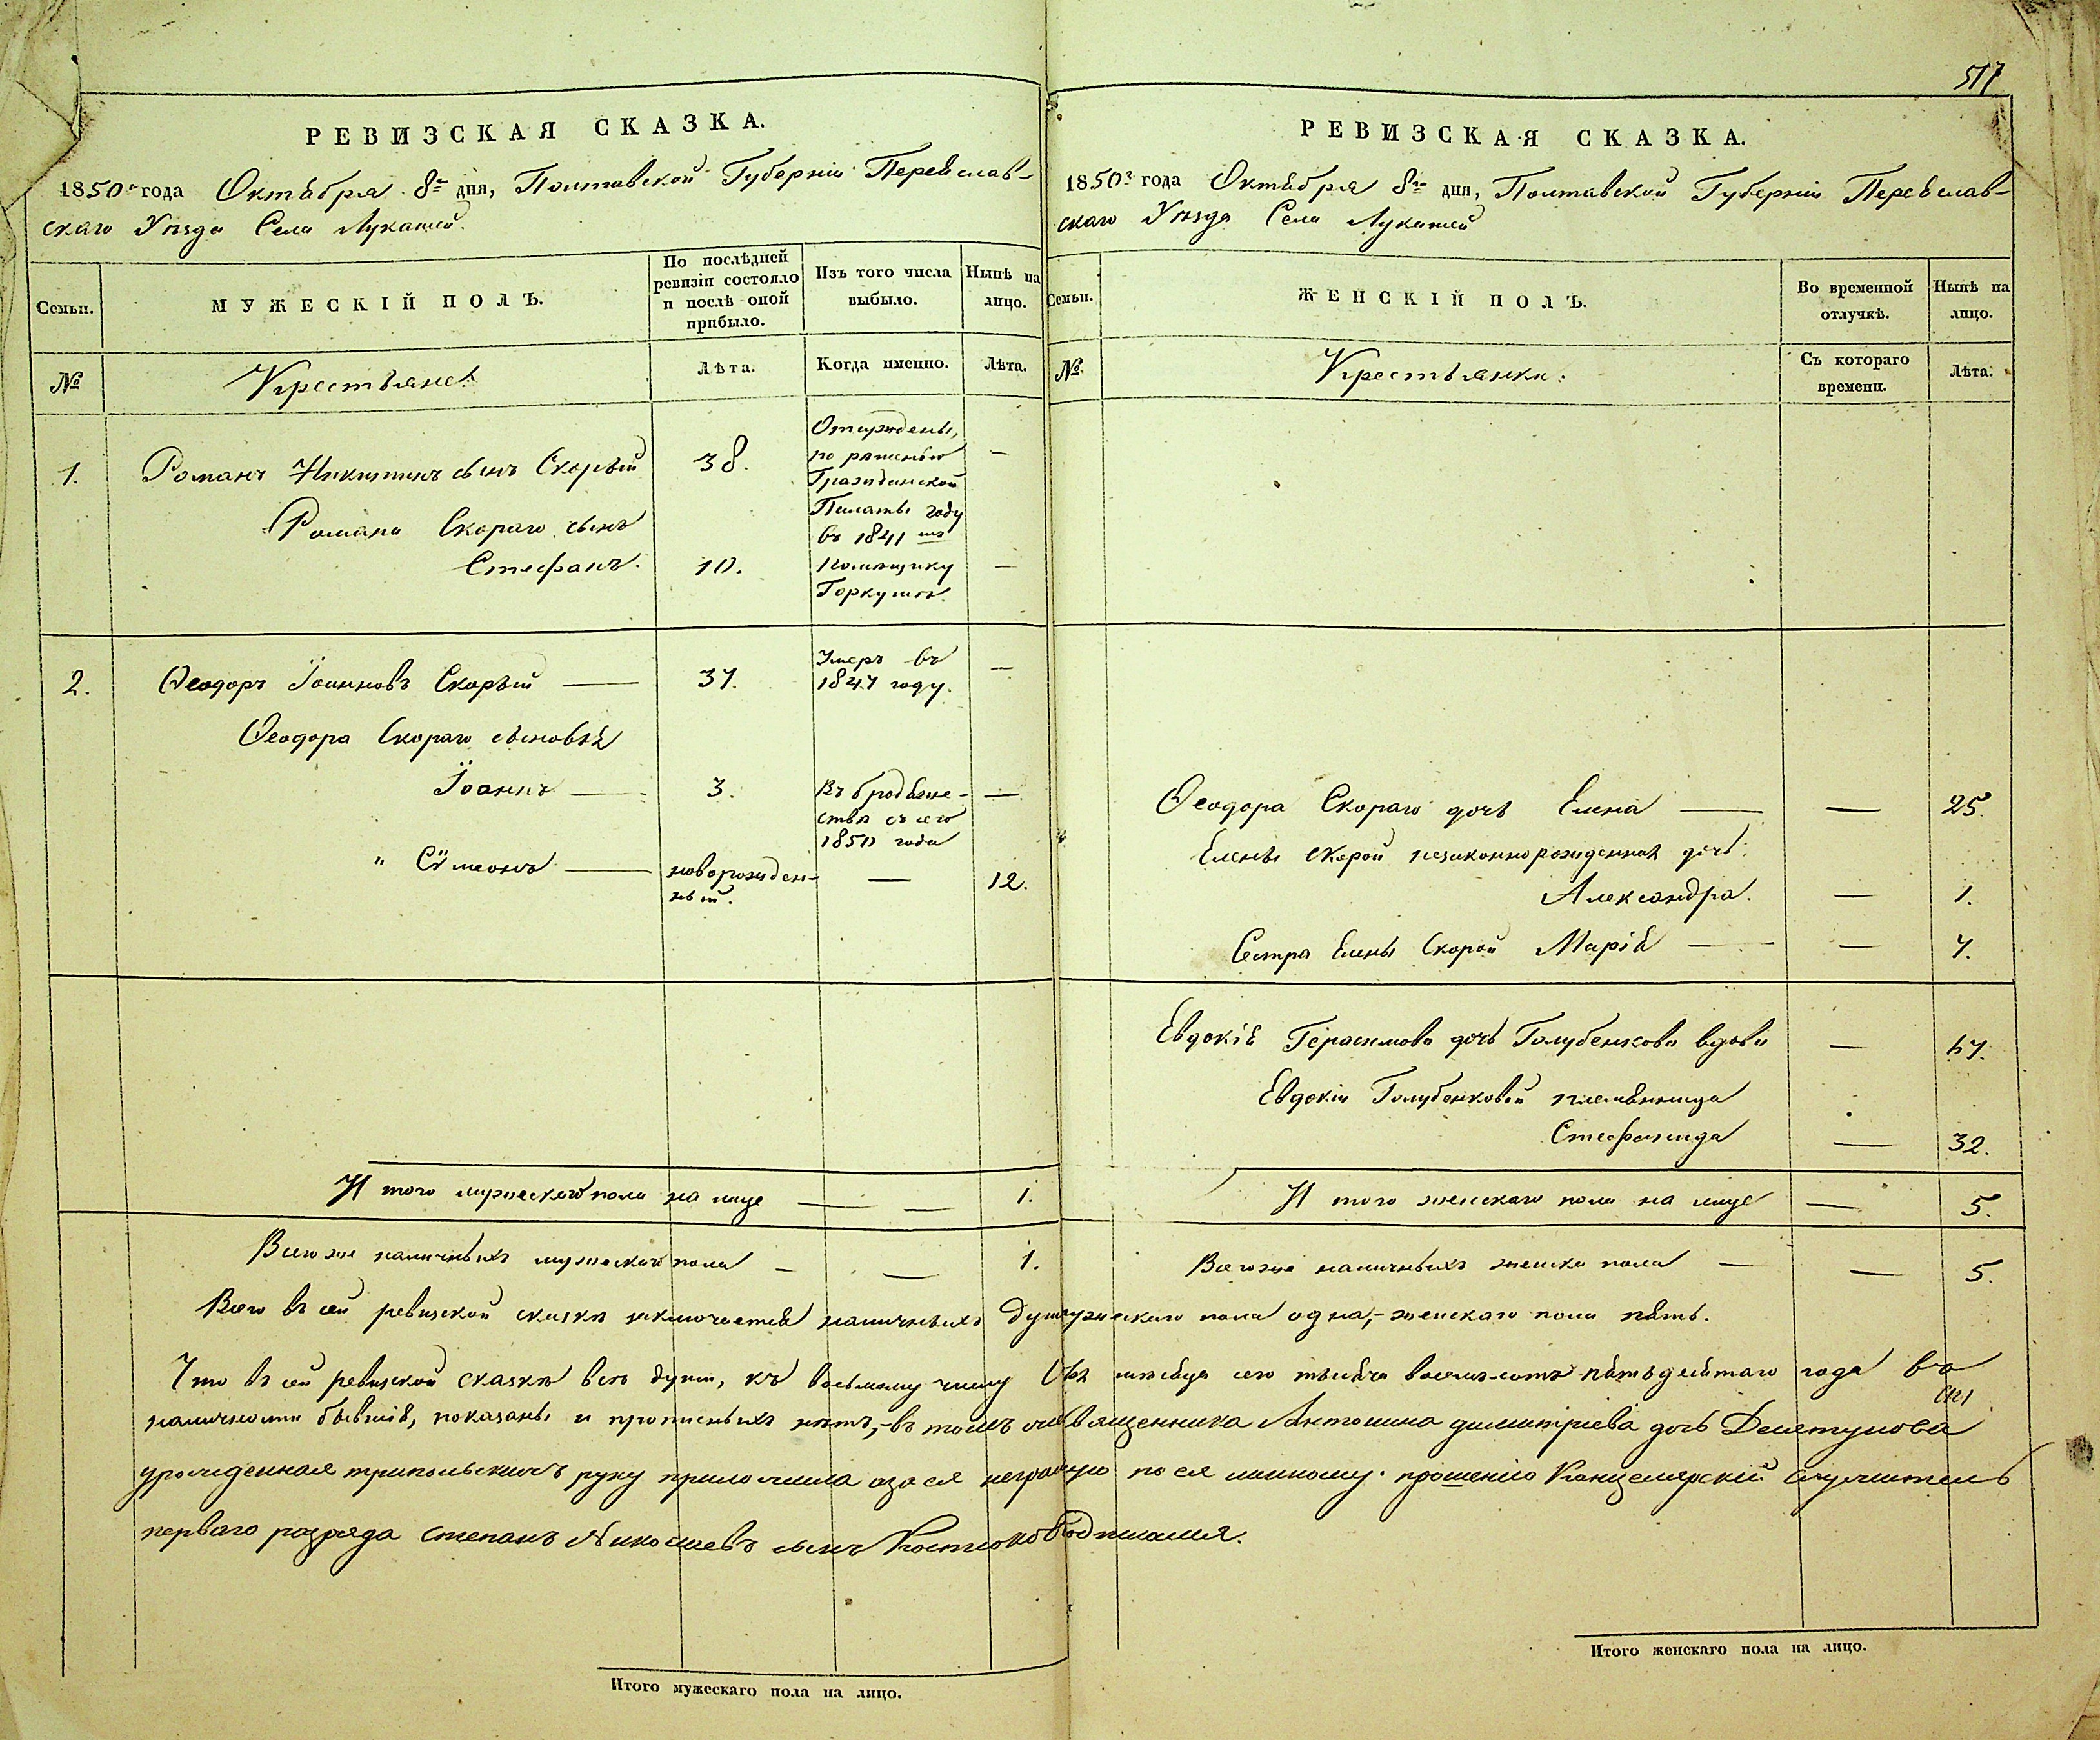 517
РЕВИЗСКАЯ СКАЗКА.
1850го года Октября 8го дня, Полтавской Губерніи Переяслав-
скаго Уѣзда Села Лукашей.
Семьи.
МУЖЕСКІЙ ПОЛЪ.
По послѣдней
ревизіи состояло
и послѣ оной
прибыло.
Изъ того числа
выбыло.
Нынѣ на
лицо.
№
Крестьяне:
Лѣта.
Когда именно.
Лѣта.
1.
Романъ Никитинъ сынъ Скорый
38.
Отсуждены,
по рѣшенію
Гражданской
Палаты
въ 1841мъ году
помѣщику
Горкушѣ.
—
Романа Скораго сынъ
Стефанъ.
10.
—
2.
Ѳеодоръ Іоанновъ Скорый —
37.
Умеръ въ
1847 году.
—
Ѳеодора Скораго сыновья
Іоаннъ —
3.
Въ бродяже-
ствѣ съ сего
1850 года
—
" Сѵмеонъ —
новорожден-
ный.
—
12.
И того мужескаго пола на лице — —
1.
Всего же наличныхъ мужескаго пола — —
1.
РЕВИЗСКАЯ СКАЗКА.
1850го года Октября 8го дня, Полтавской Губерніи Переяслав-
скаго Уѣзда Села Лукашей
Семьи.
ЖЕНСКІЙ ПОЛЪ.
Во временной
отлучкѣ.
Нынѣ на
лицо.
№.
Крестьянки:
Съ котораго
времени.
Лѣта.
Ѳеодора Скораго дочь Елена —
—
25.
Елены Скорой незаконнорожденная дочь.
Александра.
—
1.
Сестра Елены Скорой Марія —
—
7.
Евдокія Герасимова дочь Голубенкова вдова
—
Евдокіи Голубенковой племянница
Стефанида
—
32.
И того женскаго пола на лице
—
5.
Всего же наличныхъ женска пола —
—
5.
Всего въ сей ревизской сказкѣ заключается наличныхъ душъ мужескаго пола одна,- женскаго пола пять.
Что въ сей ревизской сказкѣ всѣ души, къ восьмому числу мѣсяца сего тысяча восемьсотъ пятьдесятаго года въ
наличности бывшія, показаны и прописныхъ нѣтъ,- въ томъ священника Антонина димитріева дочь
урожденная трипольскихъ руку приложила а за ся неграмотную по ея личному прошенію Канцелярскій служитель
перваго разряда степанъ Николаевъ сынъ подписался.
Итого мужескаго пола на лицо.
Итого женскаго пола на лицо.